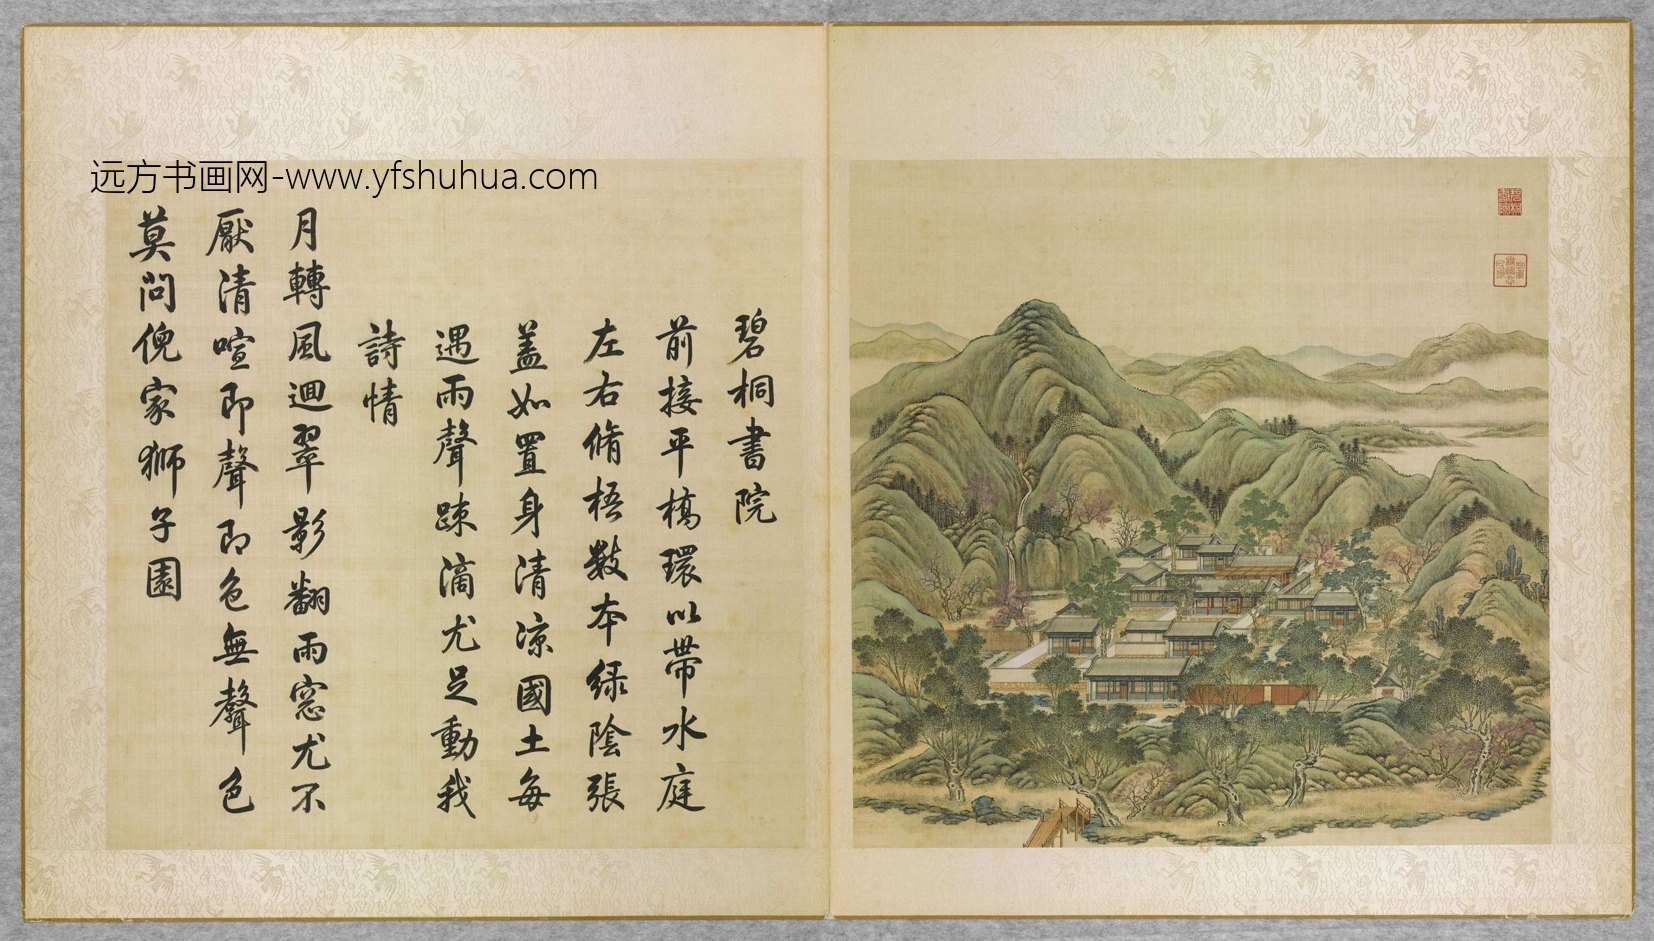 远方书画网-www.yfshuhua.com
碧桐書院
前接平橋環以帶水庭
左右脩梧數本緑陰張
蓋如置身清涼國土每
遇雨聲踈滴尤足動我
詩情
月轉風迴翠影翻雨窓尤不
厭清喧即聲即色無聲色
莫問倪家獅子園